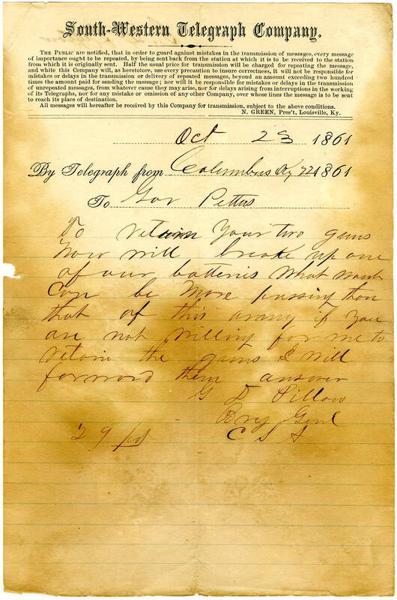 South-Western Telegraph Company.
THE PUBLIC are notified, that in order to guard against mistakes in the transmission of messages, every message
of importance ought to be repeated, by being sent back from the station at which it is to be received to the station
from which it is originally sent. Half the usual price for transmission will be charged for repeating the message,
and while this Company will, as heretofore, use every precaution to insure correctness, it will not be responsible for
mistakes or delays in the transmission or delivery of repeated messages, beyond an amount exceeding two hundred
times the amount paid for sending the message; nor will it be responsible for mistakes or delays in the transmission
of unrepeated messages, from whatever cause they may arise, nor for delays arising from interruptions in the working
of its Telegraphs, nor for any mistake or omission of any other Company, over whose lines the message is to be sent
to reach its place of destination.
All messages will hereafter be received by this Company for transmission, subject to the above conditions.
N. GREEN, Pres't, Louisville, Ky.
Oct 23 1861
By Telegraph from Columbus Ky 22 1861
To Gov Pettus
To return your two guns
now will break up one
of our batteries What want
can be more pressing than
that of this army if you
are not willing for me to
retain the guns I will
forward them answer
G J Pillow
Brig Genl
C S A
29 pd